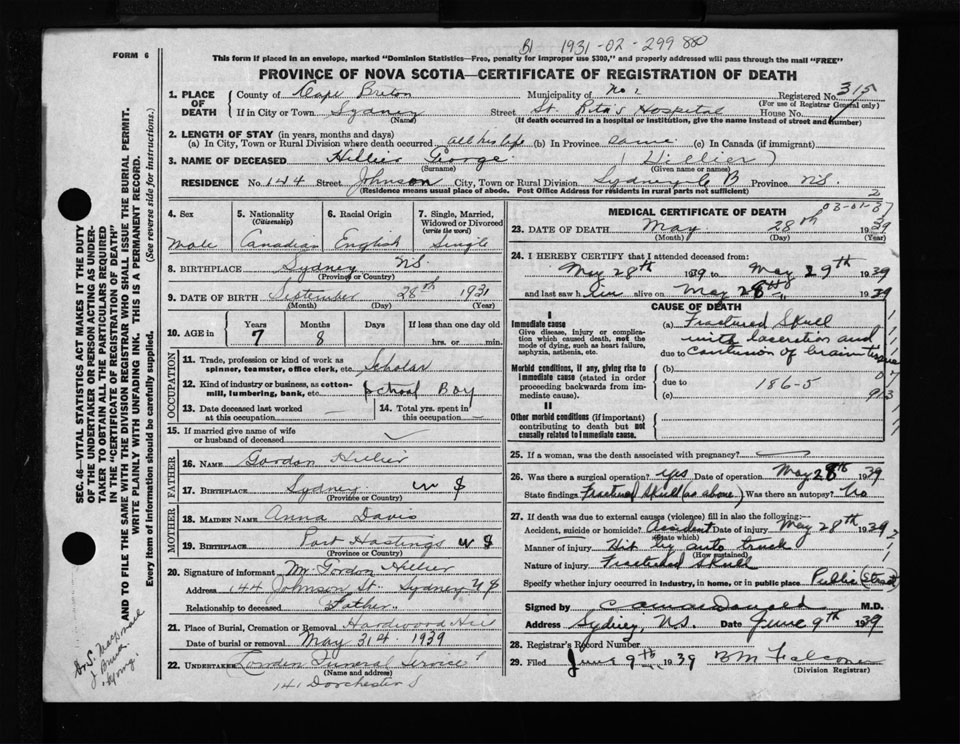 1931-02-299880
FORM 6
This form if placed in an envelope, marked "Dominion Statistics—Free, penalty for improper use $300," and properly addressed will pass through the mail "FREE"
PROVINCE OF NOVA SCOTIA—CERTIFICATE OF REGISTRATION OF DEATH
1. PLACE OF DEATH County of Cape Breton Municipality of No. Registered No. 315
(For use of Registrar General only)
If in City or Town Sydney Street St. Rita's Hospital House No.
(Name) (If death occurred in a hospital or institution, give the name instead of street and number)
2. LENGTH OF STAY (in years, months and days)
(a) In City, Town or Rural Division where death occurred all his life (b) In Province same (c) In Canada (if immigrant)
3. NAME OF DECEASED Hillier George (Hillier)
(Surname) (Given name or names)
RESIDENCE No. 144 Street Johnson City, Town or Rural Division Sydney C B Province N.S.
(Residence means usual place of abode. Post Office Address for residents in rural parts not sufficient)
4. Sex 5. Nationality (Citizenship) 6. Racial Origin 7. Single, Married, Widowed or Divorced (write the word)
Male Canadian English Single
8. BIRTHPLACE Sydney N.S.
(Province or Country)
9. DATE OF BIRTH September 28th 1931
(Month) (Day) (Year)
10. AGE in Years Months Days If less than one day old
7 8 hrs. or min.
OCCUPATION
11. Trade, profession or kind of work as spinner, teamster, office clerk, etc. Scholar
12. Kind of industry or business, as cotton-mill, lumbering, bank, etc. School Boy
13. Date deceased last worked at this occupation — 14. Total yrs. spent in this occupation —
15. If married give name of wife or husband of deceased
FATHER
16. NAME Gordon Hillier
17. BIRTHPLACE Sydney N S
(Province or Country)
MOTHER
18. MAIDEN NAME Anna Davis
19. BIRTHPLACE Port Hastings N S
(Province or Country)
20. Signature of informant Mr Gordon Hillier
Address 144 Johnson St. Sydney N S
Relationship to deceased Father
21. Place of Burial, Cremation or Removal Hardwood Hill
Date of burial or removal May 31st 1939
22. UNDERTAKER Funeral Service
(Name and address)
141 Dorchester S
MEDICAL CERTIFICATE OF DEATH
23. DATE OF DEATH May 28th 1939
(Month) (Day) (Year)
24. I HEREBY CERTIFY that I attended deceased from:
May 28th 1939 to May 29th 1939
and last saw him alive on May 28th 1939
CAUSE OF DEATH
I
Immediate cause (a) Fractured Skull
Give disease, injury or complication which caused death, not the mode of dying, such as heart failure, asphyxia, asthenia, etc.
with laceration and
due to contusion of brain tissue
Morbid conditions, if any, giving rise to immediate cause (stated in order proceeding backwards from immediate cause).
(b)
due to 186-5
(c)
II
Other morbid conditions (if important) contributing to death but not causally related to immediate cause.
25. If a woman, was the death associated with pregnancy?
26. Was there a surgical operation? yes Date of operation May 28th 1939
State findings Fractured skull (as above) Was there an autopsy? No
27. If death was due to external causes (violence) fill in also the following:—
Accident, suicide or homicide? Accident Date of injury May 28th 1939
(State which)
Manner of injury Hit by auto truck
(How sustained)
Nature of injury Fractured Skull
Specify whether injury occurred in industry, in home, or in public place Public (Street)
Signed by M.D.
Address Sydney, N.S. Date June 9th 1939
28. Registrar's Record Number
29. Filed June 9th 1939 B M Falconer
(Division Registrar)
SEC. 46—VITAL STATISTICS ACT MAKES IT THE DUTY
OF THE UNDERTAKER OR PERSON ACTING AS UNDER-
TAKER TO OBTAIN ALL THE PARTICULARS REQUIRED
IN THE "CERTIFICATE OF REGISTRATION OF DEATH"
AND TO FILE THE SAME WITH THE DIVISION REGISTRAR WHO SHALL ISSUE THE BURIAL PERMIT.
WRITE PLAINLY WITH UNFADING INK. THIS IS A PERMANENT RECORD.
Every item of information should be carefully supplied. (See reverse side for instructions.)